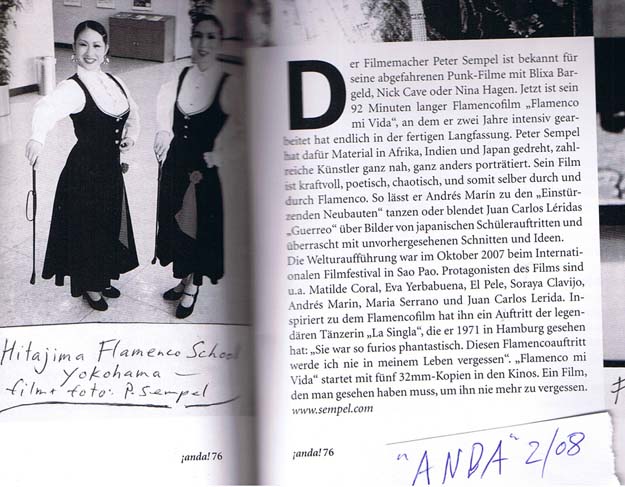 Hitajima Flamenco School
Yokohama –
film + foto: P. Sempel
¡anda! 76
Der Filmemacher Peter Sempel ist bekannt für
seine abgefahrenen Punk-Filme mit Blixa Bar-
geld, Nick Cave oder Nina Hagen. Jetzt ist sein
92 Minuten langer Flamencofilm „Flamenco
mi Vida“, an dem er zwei Jahre intensiv gear-
beitet hat endlich in der fertigen Langfassung. Peter Sempel
hat dafür Material in Afrika, Indien und Japan gedreht, zahl-
reiche Künstler ganz nah, ganz anders porträtiert. Sein Film
ist kraftvoll, poetisch, chaotisch, und somit selber durch und
durch Flamenco. So lässt er Andrés Marín zu den „Einstür-
zenden Neubauten“ tanzen oder blendet Juan Carlos Léridas
„Guerreo“ über Bilder von japanischen Schülerauftritten und
überrascht mit unvorhergesehenen Schnitten und Ideen.
Die Welturaufführung war im Oktober 2007 beim Internati-
onalen Filmfestival in Sao Pao. Protagonisten des Films sind
u.a. Matilde Coral, Eva Yerbabuena, El Pele, Soraya Clavijo,
Andrés Marin, Maria Serrano und Juan Carlos Lerida. In-
spiriert zu dem Flamencofilm hat ihn ein Auftritt der legen-
dären Tänzerin „La Singla“, die er 1971 in Hamburg gesehen
hat: „Sie war so furios phantastisch. Diesen Flamencoauftritt
werde ich nie in meinem Leben vergessen“. „Flamenco mi
Vida“ startet mit fünf 32mm-Kopien in den Kinos. Ein Film,
den man gesehen haben muss, um ihn nie mehr zu vergessen.
www.sempel.com
¡anda! 76
"ANDA" 2/08